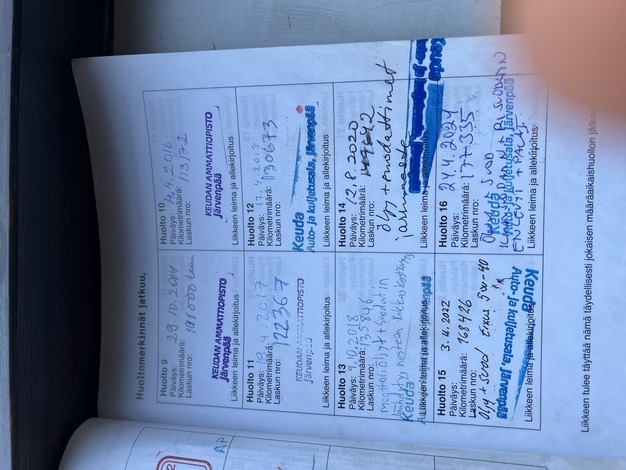 Huoltomerkinnät jatkuu,
Huolto 9
Päiväys: 29.10.2014
Kilometrimäärä: 101000 km
Laskun nro:
KEUDAN AMMATTIOPISTO
Järvenpää
Liikkeen leima ja allekirjoitus
Huolto 10
Päiväys: 4.4.2016
Kilometrimäärä: 113172
Laskun nro:
KEUDAN AMMATTIOPISTO
Järvenpää
Liikkeen leima ja allekirjoitus
Huolto 11
Päiväys: 4.2017
Kilometrimäärä: 122367
Laskun nro:
KEUDAN AMMATTIOPISTO
Järvenpää
Liikkeen leima ja allekirjoitus
Huolto 12
Päiväys: 17.4.2018
Kilometrimäärä: 130673
Laskun nro:
Keuda
Auto- ja kuljetusala, Järvenpää
Liikkeen leima ja allekirjoitus
Huolto 13
Päiväys: 10.2018
Kilometrimäärä: 135846
Laskun nro:
Keuda
Liikkeen leima ja allekirjoitus
Huolto 14
Päiväys: 12.8.2020
Kilometrimäärä:
Laskun nro:
öljy + suodattimet
Keuda
Liikkeen leima ja allekirjoitus
Huolto 15
Päiväys: 3.4.2022
Kilometrimäärä: 168426
Laskun nro:
Öljy + suod 5w-40
Keuda
Auto- ja kuljetusala, Järvenpää
Liikkeen leima ja allekirjoitus
Huolto 16
Päiväys: 24.4.2024
Kilometrimäärä: 177335
Laskun nro:
Keuda
Auto- ja kuljetusala, Järvenpää
Liikkeen leima ja allekirjoitus
Liikkeen tulee täyttää nämä täydellisesti jokaisen määräaikaishuollon